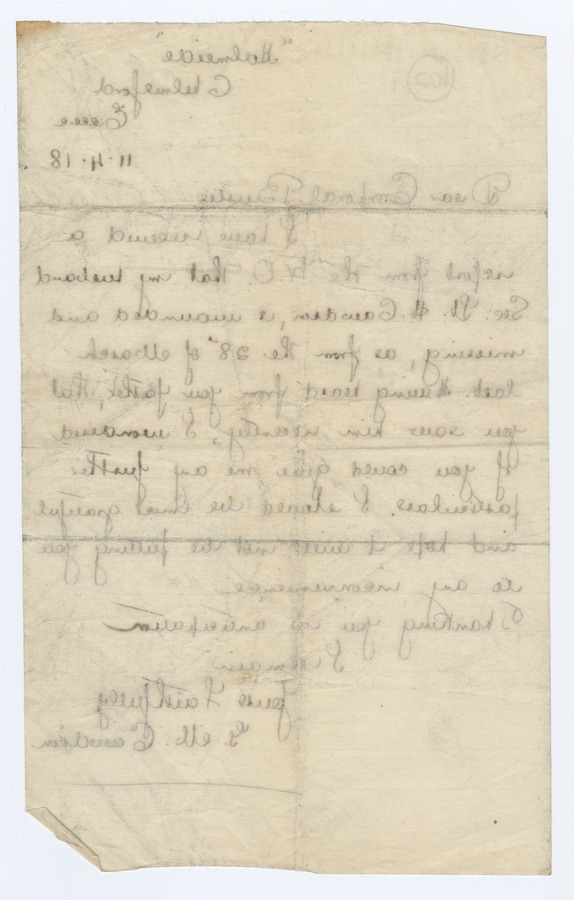 102
"Holmeide"
Chelmsford
Essex
11.4.18.
Dear Corporal
I have received a
report from the W.O. that my husband
Sec: Lt. H. Cawdron, is wounded and
missing, as from the 28th of March
last. Having heard from you father, that
you saw him recently, I wondered
if you could give me any further
particulars. I should be most grateful
and hope I will not be putting you
to any inconvenience
Thanking you in anticipation
I remain
Yours Faithfully
M. Cawdron